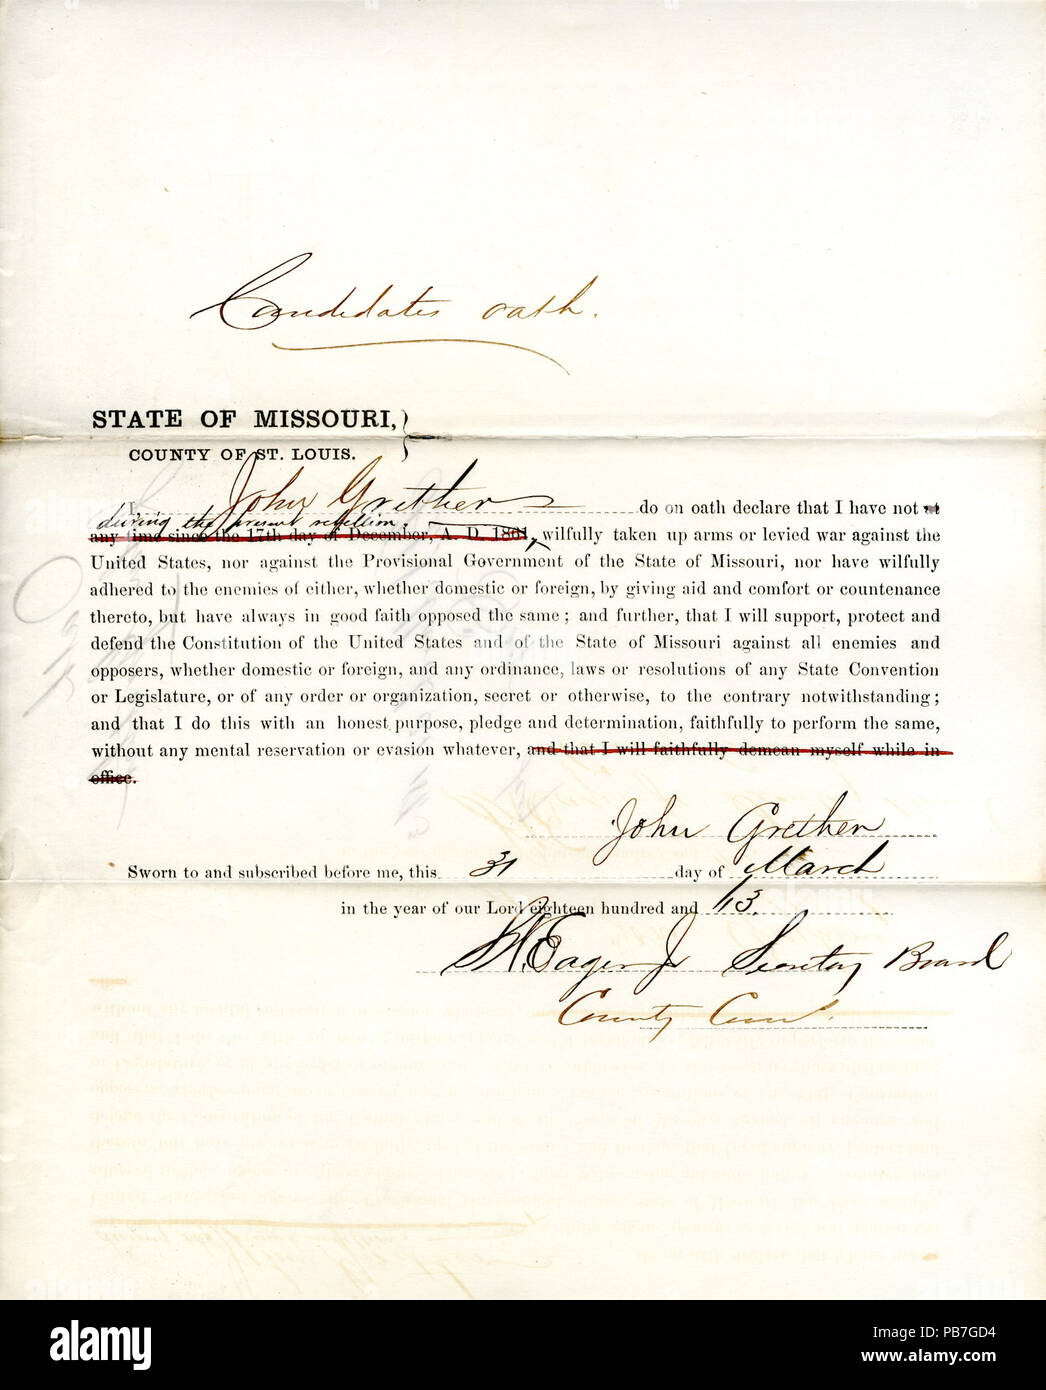 Candidates oath.
STATE OF MISSOURI,
COUNTY OF ST. LOUIS.
I, John Grether do on oath declare that I have not at
during the present rebellion.
any time since the 17th day of December, A. D. 1861, wilfully taken up arms or levied war against the
United States, nor against the Provisional Government of the State of Missouri, nor have wilfully
adhered to the enemies of either, whether domestic or foreign, by giving aid and comfort or countenance
thereto, but have always in good faith opposed the same; and further, that I will support, protect and
defend the Constitution of the United States and of the State of Missouri against all enemies and
opposers, whether domestic or foreign, and any ordinance, laws or resolutions of any State Convention
or Legislature, or of any order or organization, secret or otherwise, to the contrary notwithstanding;
and that I do this with an honest purpose, pledge and determination, faithfully to perform the same,
without any mental reservation or evasion whatever, and that I will faithfully demean myself while in
office.
John Grether
Sworn to and subscribed before me, this 31 day of March
in the year of our Lord eighteen hundred and 63.
Eager Jr Secretary Board
County
alamy
Image ID: PB7GD4
www.alamy.com